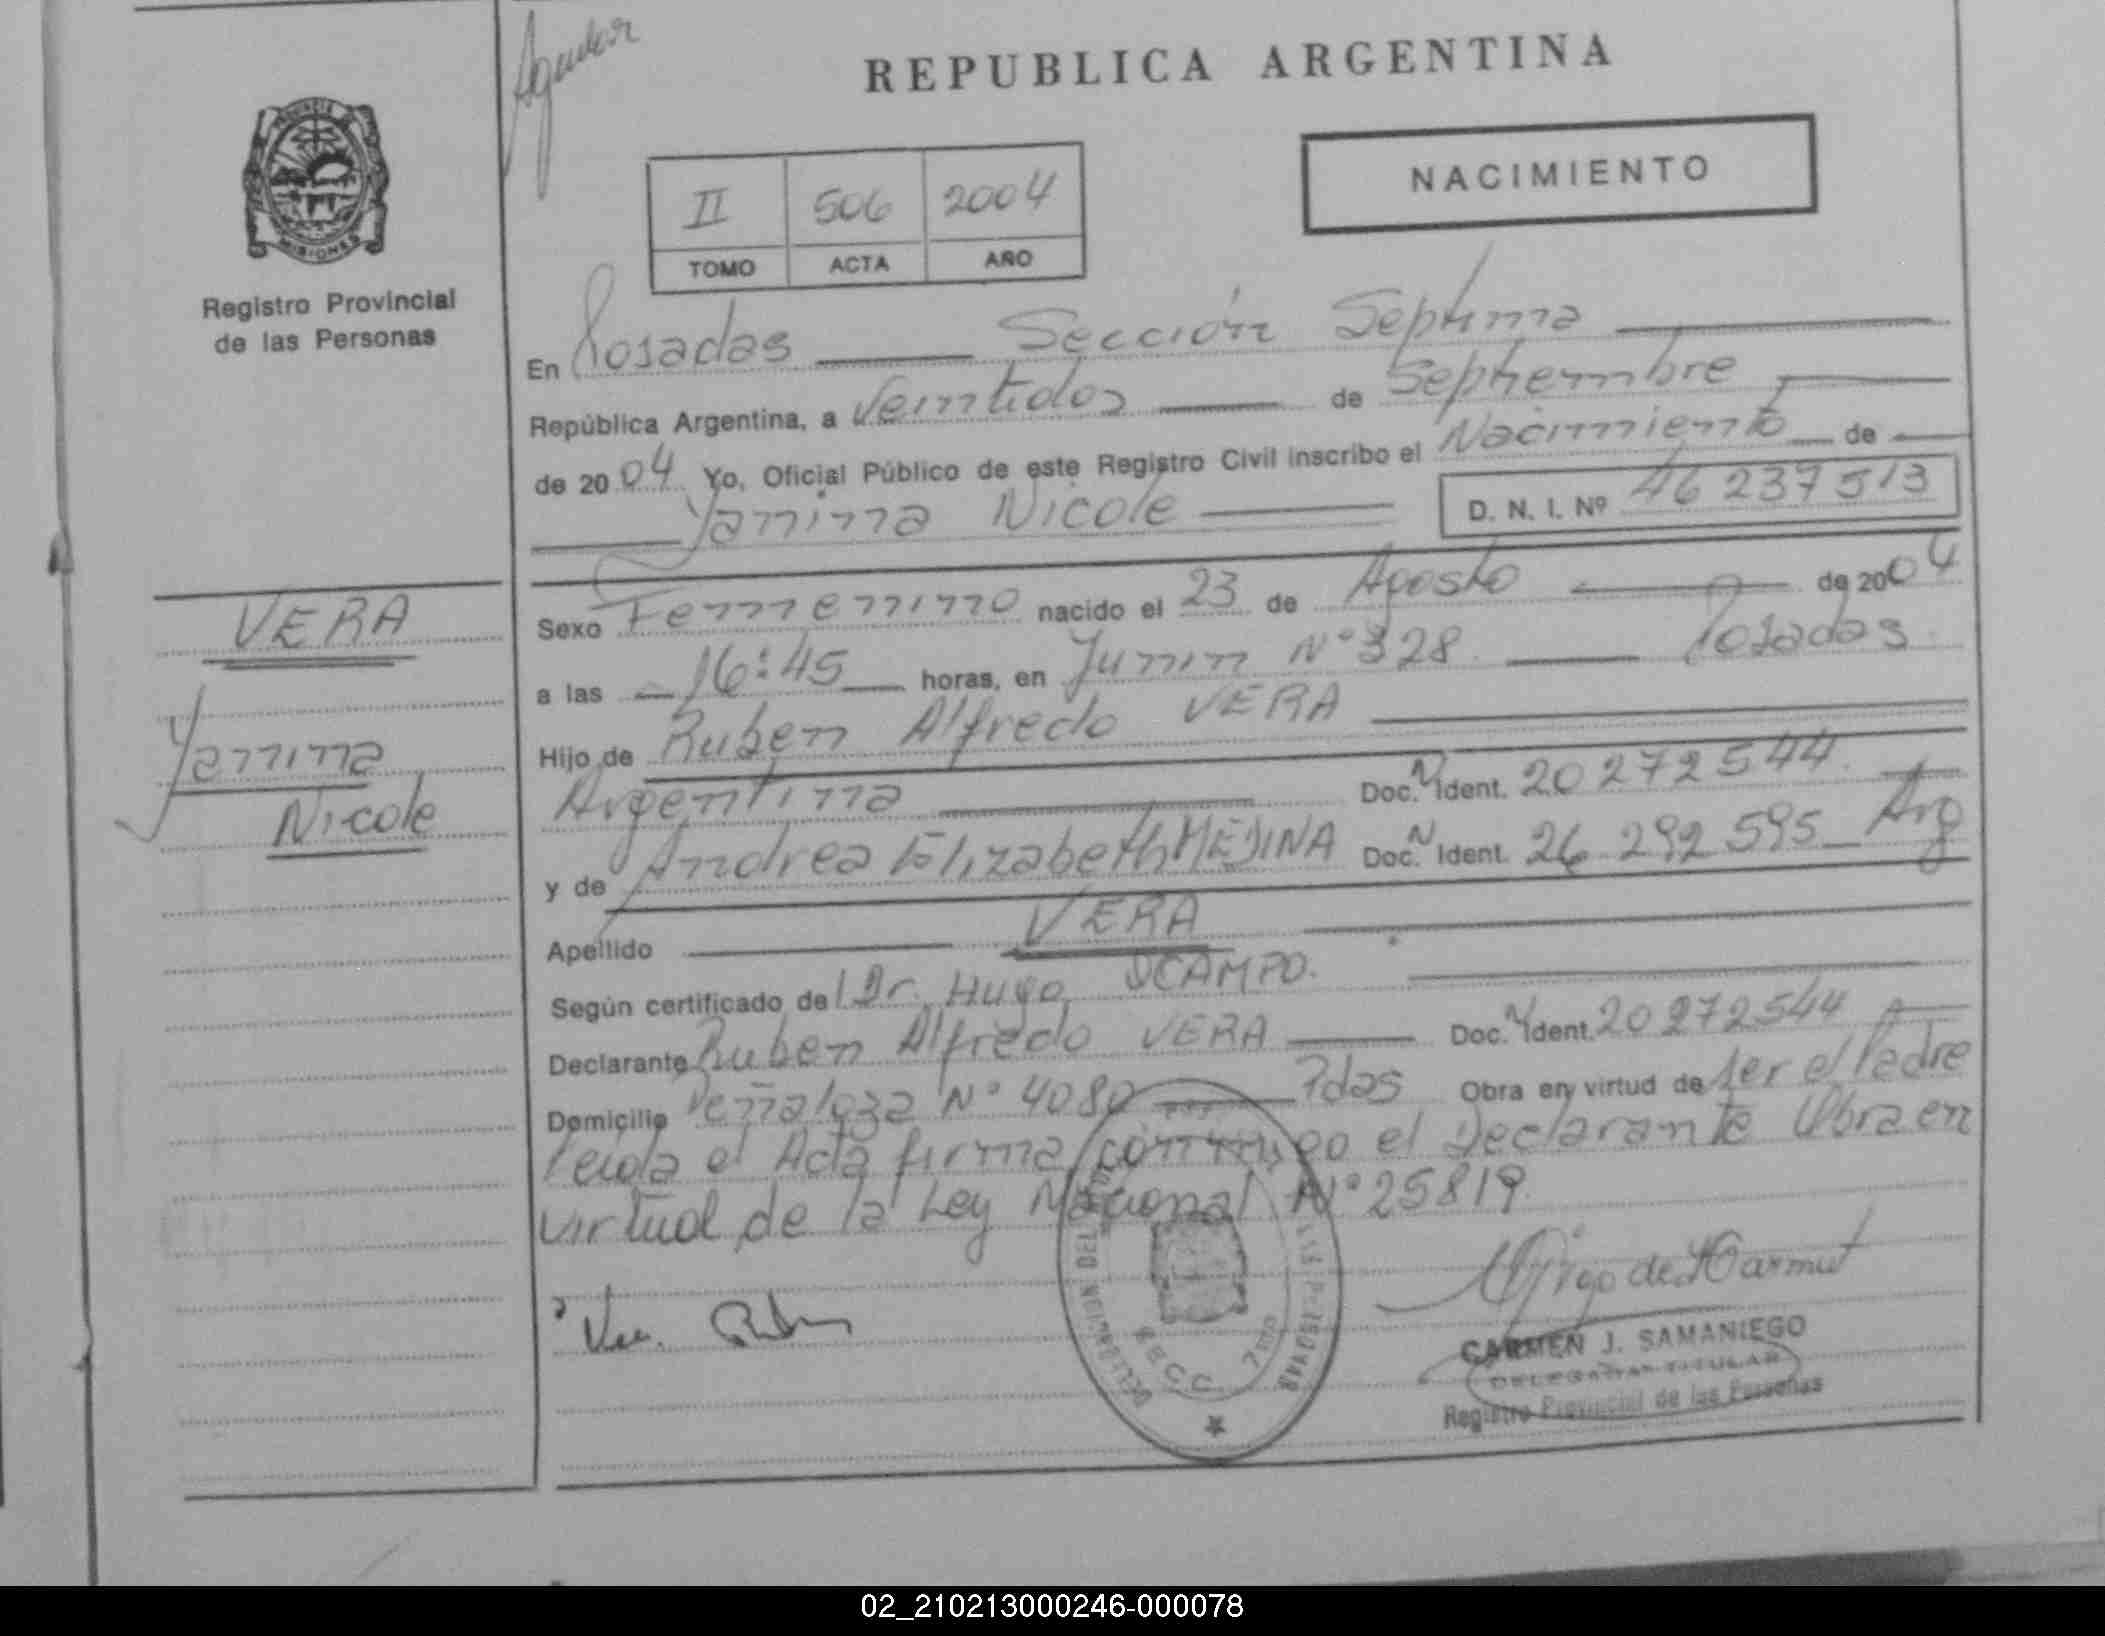 Aguilar
REPUBLICA ARGENTINA
PROVINCIA
MISIONES
Registro Provincial
de las Personas
II 506 2004
TOMO ACTA AÑO
NACIMIENTO
En Posadas Sección Septima
República Argentina, a Veintidos de Septiembre
de 2004 Yo, Oficial Público de este Registro Civil inscribo el Nacimiento de
Yanina Nicole D. N. I. Nº 46 237 513
VERA
Yanina
Nicole
Sexo Femenino nacido el 23 de Agosto de 2004
a las 16:45 horas, en Junin Nº 328 Posadas
Hijo de Ruben Alfredo VERA
Argentina Doc. N Ident. 20 272 544
y de Andrea Elizabeth MEDINA Doc. N Ident. 26 292 595 Arg
Apellido VERA
Según certificado del Dr. Hugo OCAMPO.
Declarante Ruben Alfredo VERA Doc. N Ident. 20 272544 A
Domicilio Peñaloza Nº 4080 Pdas Obra en virtud de ser el Padre
Leida el Acta firma conmigo el Declarante Obra en
virtud de la Ley Nacional Nº 25819.
CARMEN J. SAMANIEGO
DELEGADA TITULAR
Registro Provincial de las Personas
SECC 7ma
02_210213000246-000078